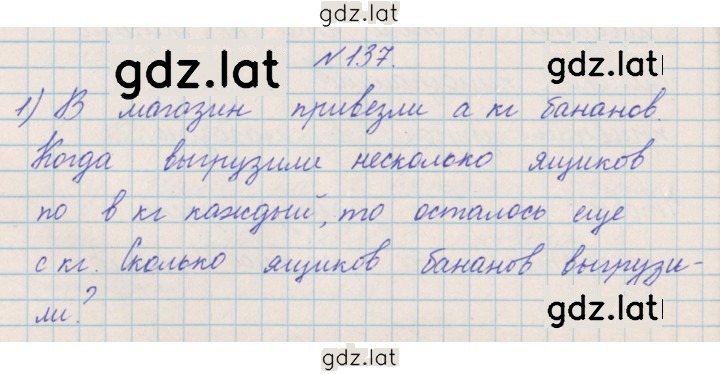 gdz.lat
gdz.lat
gdz.lat
№137.
1) В магазин привезли а кг бананов.
Когда выгрузили несколько ящиков
по в кг каждый, то осталось еще
с кг. Сколько ящиков бананов выгрузи-
ли?
gdz.lat
gdz.lat